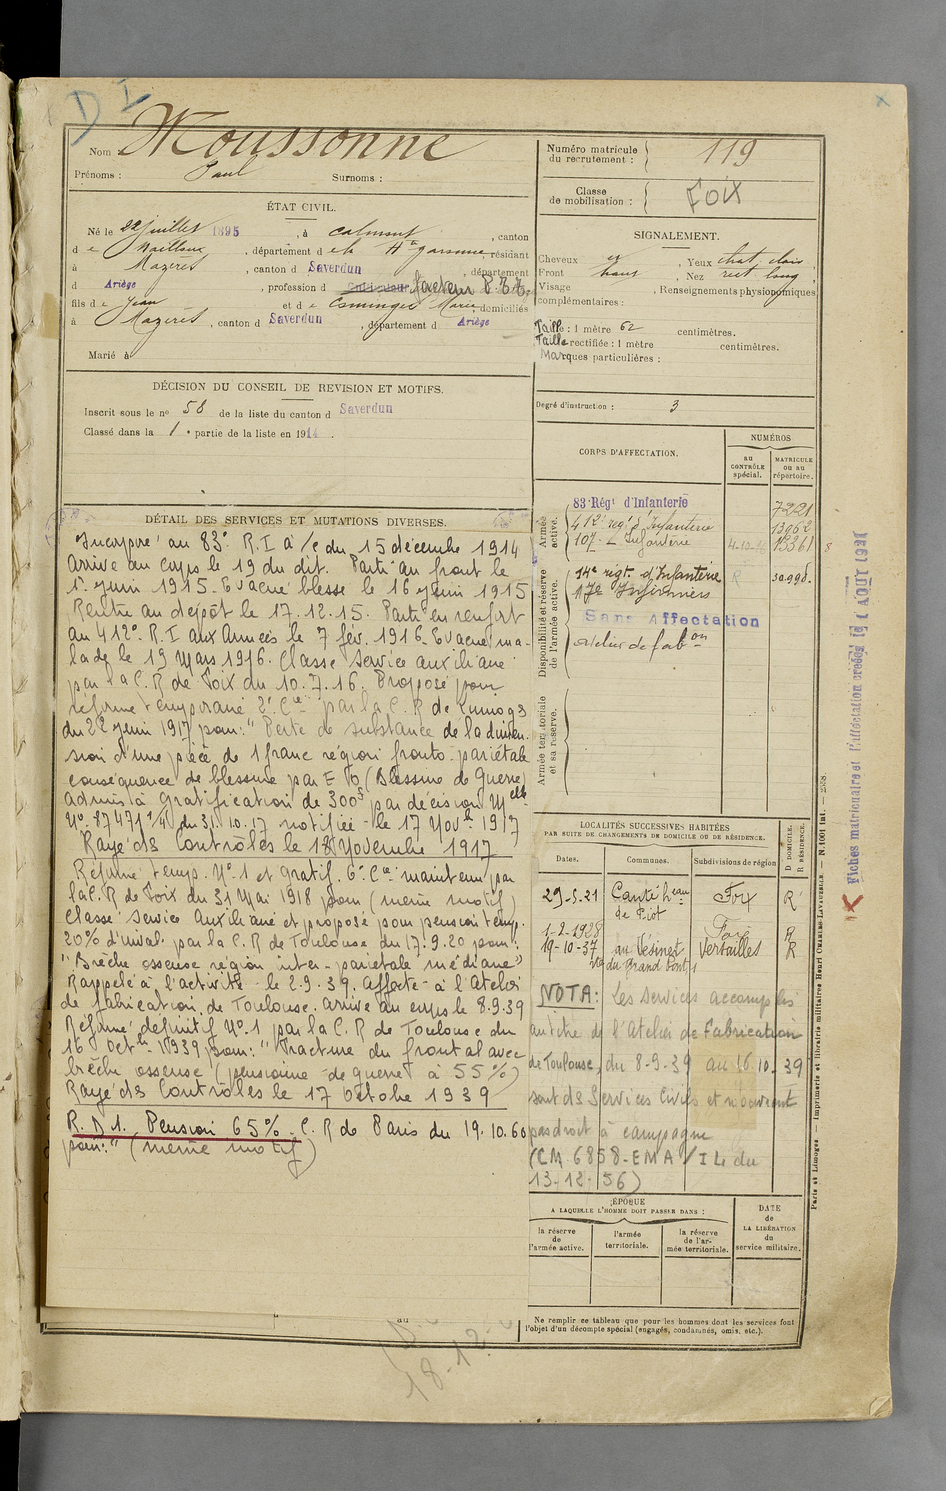 D I
Nom Moussonne
Prénoms : Paul Surnoms :
ÉTAT CIVIL.
Né le 22 juillet 1895, à Calmont, canton
de Nailloux, département de la Hte garonne, résidant
à Mazères, canton d Saverdun, département
d Ariège, profession d cultivateur facteur P.T.T.
fils de Jean et de Esminges Marie, domiciliés
à Mazères, canton d Saverdun, département d Ariège
Marié à
DÉCISION DU CONSEIL DE REVISION ET MOTIFS.
Inscrit sous le n° 58 de la liste du canton d Saverdun
Classé dans la 1e partie de la liste en 1914.
DÉTAIL DES SERVICES ET MUTATIONS DIVERSES.
Incorporé au 83e R.I à /c du 15 décembre 1914
Arrivé au corps le 19 du dit. Parti au front le
1er juin 1915. Evacué blessé le 16 juin 1915
Rentré au dépôt le 17.12.15. Parti en renfort
au 412e R.I aux Armées le 7 fév. 1916. Evacué ma-
lade le 19 Mars 1916. Classé Service auxiliaire
par la C.R de Foix du 10.7.16. Proposé pour
réforme temporaire 2e Cie par la C.R de Limoges
du 22 juin 1917 pour: "Perte de substance de la dimen-
sion d'une pièce de 1 franc région fronto-pariétale
conséquence de blessure par E O (Blessure de Guerre)
admis à Gratification de 300f par décision Melle
N° 87471 1/4 du 31.10.17 notifiée le 17 Novbre 1917
Rayé des Contrôles le 18 Novembre 1917
Réforme temp. N°1 et gratif. 6e Cie maintenu par
la C.R de Foix du 31 Mai 1918 pour (même motif)
Classé Service Auxiliaire et proposé pour pension temp.
20% d'inval. par la C.R de Toulouse du 17.9.20 pour:
"Brêche osseuse région inter-pariétale médiane"
Rappelé à l'activité le 2.9.39. Affecté à l'Atelier
de fabrication de Toulouse. arrivé au corps le 8.9.39
Réformé définitif N°1 par la C.R de Toulouse du
16 Octbre 1939 pour: "Fracture du frontal avec
brêche osseuse (pensionné de guerre à 55%)
Rayé des Contrôles le 17 Octobre 1939
R.D 1. Pension 65% - C.R de Paris du 19.10.60
pour: "(même motif)
au
18-12-
Numéro matricule
du recrutement : 119
Classe
de mobilisation : Foix
SIGNALEMENT.
Cheveux , Yeux chat. clair
Front haut, Nez rect. long
Visage , Renseignements physionomiques
complémentaires :
Taille : 1 mètre 62 centimètres.
Taille rectifiée : 1 mètre centimètres.
Marques particulières :
Degré d'instruction : 3
CORPS D'AFFECTATION.
NUMÉROS
au
CONTRÔLE
spécial.
MATRICULE
ou au
répertoire.
Armée
active.
83e Régt d'Infanterie 7221
412e régt d'Infanterie 13962
107e d'Infanterie 4-10-16 13361 8
Disponibilité et réserve
de l'armée active.
14e régt. d'Infanterie R
17e Infirmiers
Sans Affectation
atelier de fabon
Armée territoriale
et sa réserve.
LOCALITÉS SUCCESSIVES HABITÉES
PAR SUITE DE CHANGEMENTS DE DOMICILE OU DE RÉSIDENCE.
Dates. Communes. Subdivisions de région
D DOMICILE.
R RÉSIDENCE.
29-5-21 Canté heau Foix R
de Piot
1-2-1928 Foix R
19-10-37 au Vésinet Versailles R
rte du Grand Pont 1
NOTA: Les services accomplis
au titre de l'Atelier de Fabrication
de Toulouse, du 8-9-39 au 16.10.39
sont ds Services Civils et n'ouvrent
pas droit à campagne
(CM 6858-EMA/IL du
13-12-56)
ÉPOQUE
A LAQUELLE L'HOMME DOIT PASSER DANS :
la réserve
de
l'armée active.
l'armée
territoriale.
la réserve
de l'ar-
mée territoriale.
DATE
de
LA LIBÉRATION
du
service militaire.
Ne remplir ce tableau que pour les hommes dont les services font
l'objet d'un décompte spécial (engagés, condamnés, omis, etc.).
Paris et Limoges. — Imprimerie et librairie militaires Henri CHARLES-LAVAUZELLE. — N. 1001 int. — 258.
Fiches matriculaire et d'affectation créées le AOUT 192